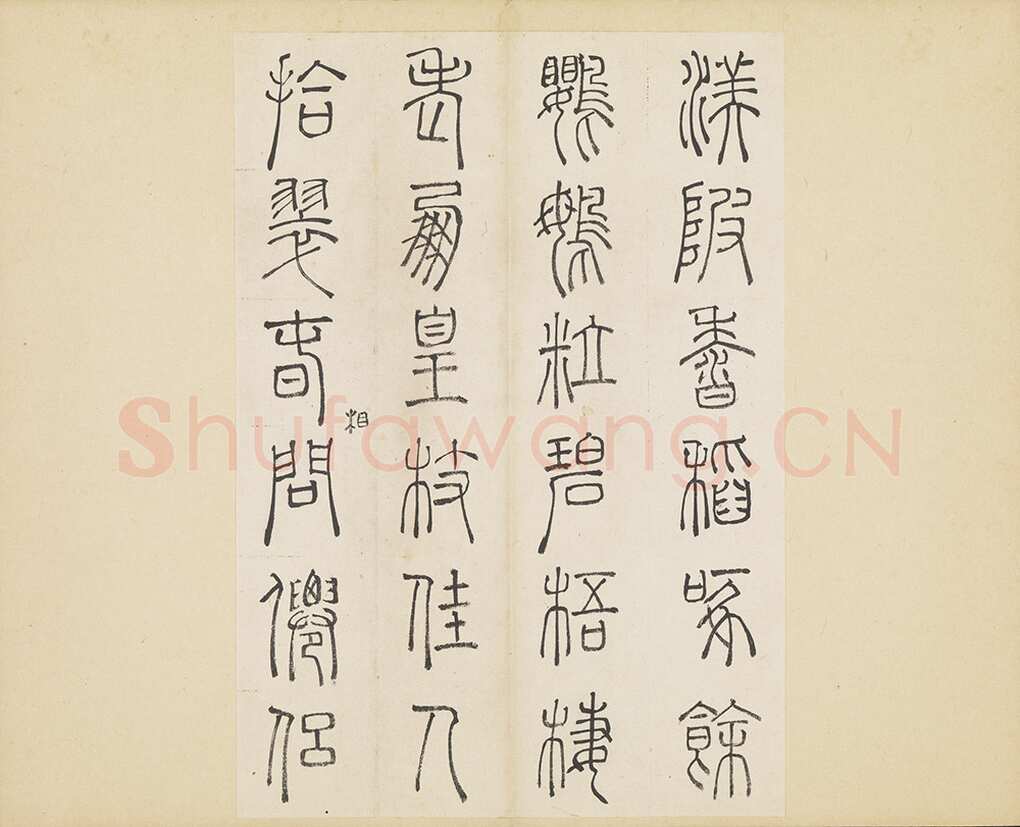 渼陂香稻啄餘
鸚䳇粒碧梧棲
老鳳皇枝佳人
拾翠春相問僊侶
Shufawang.CN